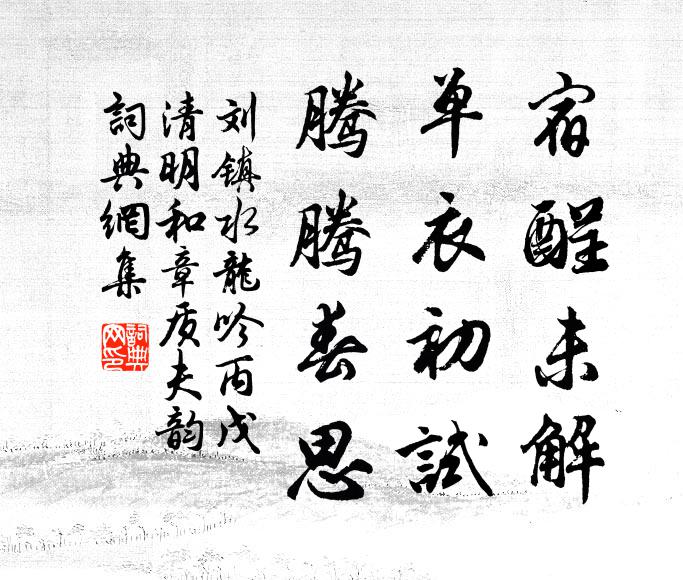 宿酲未解
单衣初試
騰騰春思
刘镇水龍吟丙戌
清明和章质夫韵
詞典網集
詞典
网印